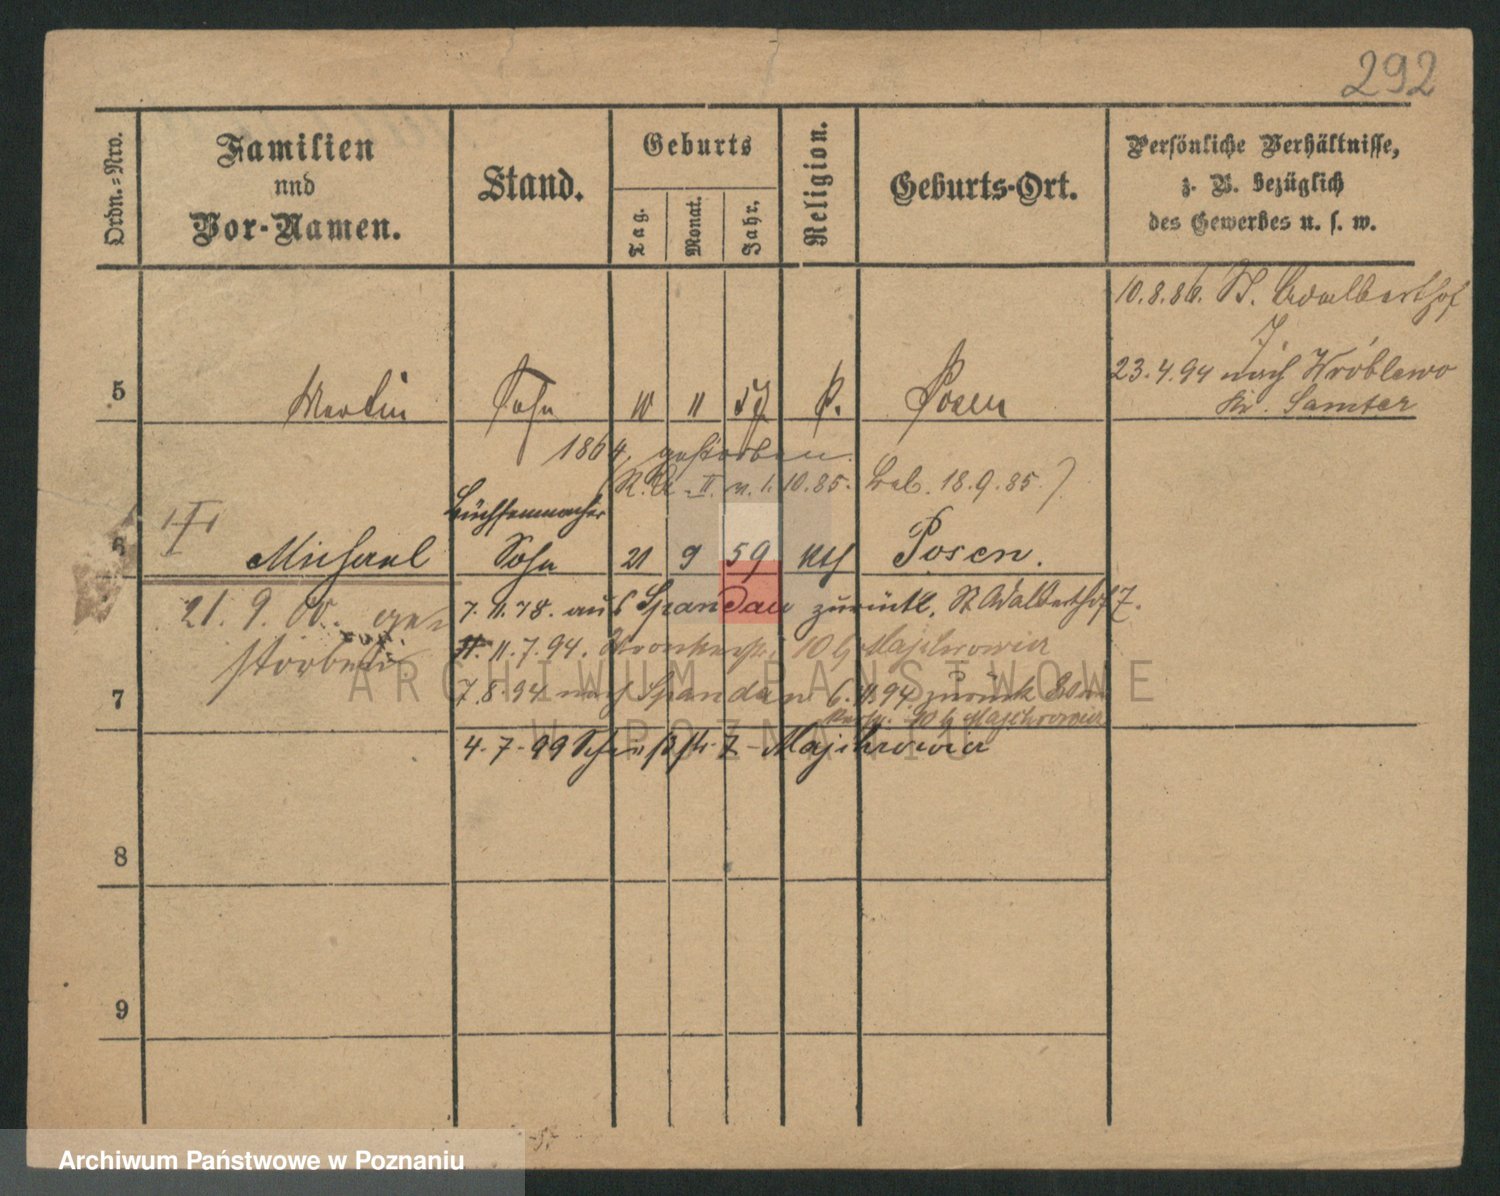 292
Ordn.-Nro.
Familien
und
Vor-Namen.
Stand.
Geburts
Tag.
Monat.
Jahr.
Religion.
Geburts-Ort.
Persönliche Verhältnisse,
z. B. bezüglich
des Gewerbes u. s. w.
10.8.86. St. Adalberthof
7.
23.4.94 nach Wróblewo
Kr. Samter
5 Martin Sohn 10 11 57 k. Posen
1864 gestorben.
18.9.85.)
Büchsenmacher
6 Michael Sohn 21 9 59 kth Posen.
21. 9. 00. ge=
storben
7.11.78. aus Spandau zurück. St Adalberthof 7.
11.7.94. 10 b Majchrowicz
7
7.8.94 nach Spandau 6.11.94 zurück
10 b Majchrowicz
4-7-99 7 - Majchrowicz
8
9
ARCHIWUM PAŃSTWOWE
W POZNANIU
Archiwum Państwowe w Poznaniu